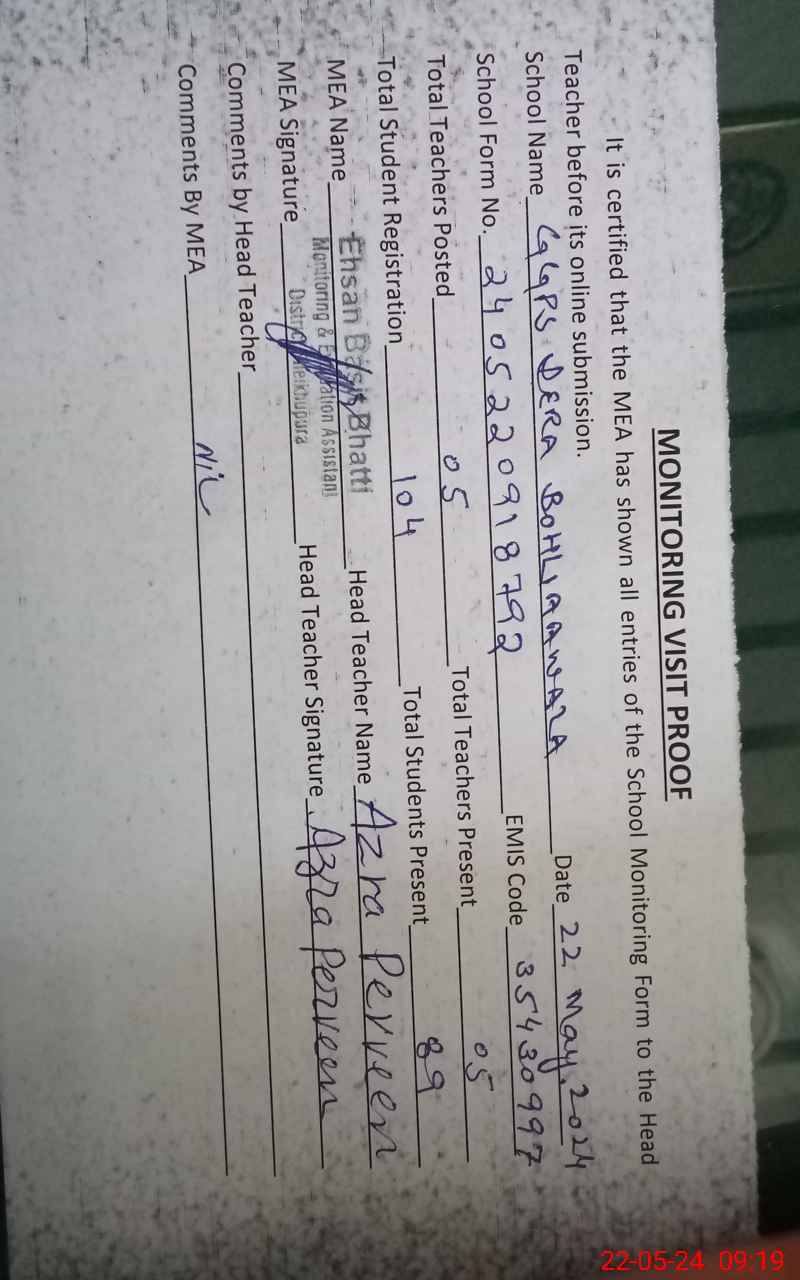 MONITORING VISIT PROOF
It is certified that the MEA has shown all entries of the School Monitoring Form to the Head
Teacher before its online submission.
School Name GGPS DERA BOHLIAAWALA Date 22 May, 2024
School Form No. 2405220918792 EMIS Code 35430997
Total Teachers Posted 05 Total Teachers Present 05
Total Student Registration 104 Total Students Present 89
MEA Name Ehsan Basit Bhatti Head Teacher Name Azra Perveen
Monitoring & Evaluation Assistant
District Sheikhupura
MEA Signature Head Teacher Signature Azra Perveen
Comments by Head Teacher
Comments By MEA Nil
22-05-24 09:19